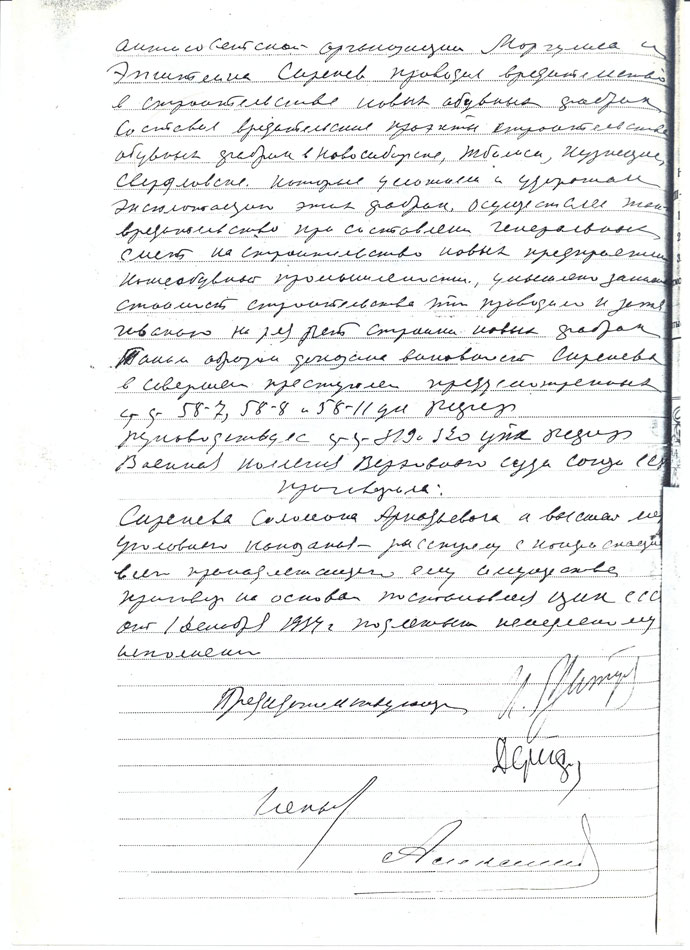 антисоветской организации Моргулиса и
Эпштейна Сиренев проводил вредительство
в строительстве новых обувных фабрик
составлял вредительские проэкты строительства
обувных фабрик в Новосибирске, Тбилиси, Кузнецке,
Свердловске. которые усложняли и удорожали
эксплоатацию этих фабрик. осуществлял
вредительство при составлении генеральных
смет на строительство новых предприятий
кожобувной промышлености, умышлено
стоимость строительства проводило и
на рез рост страны новых фабрик
Таким образом доказана виновность Сиренева
в совершен преступлен предусмотренных
ст ст 58-7, 58-8 и 58-11 ук РСФСР
руководствуясь ст-ст-319 и 320 упк РСФСР
Военная коллегия Верховного суда Союза ССР
приговорила:
Сиренева Соломона Аркадьевога к высшей
уголовного наказания – расстрелу с конфискацией
всего принадлежащего ему имущества
приговор на основан постановления ЦИК ССС
от 1 декабря 1934 г подлежит немедленному
исполнен
Председательствующий
Члены